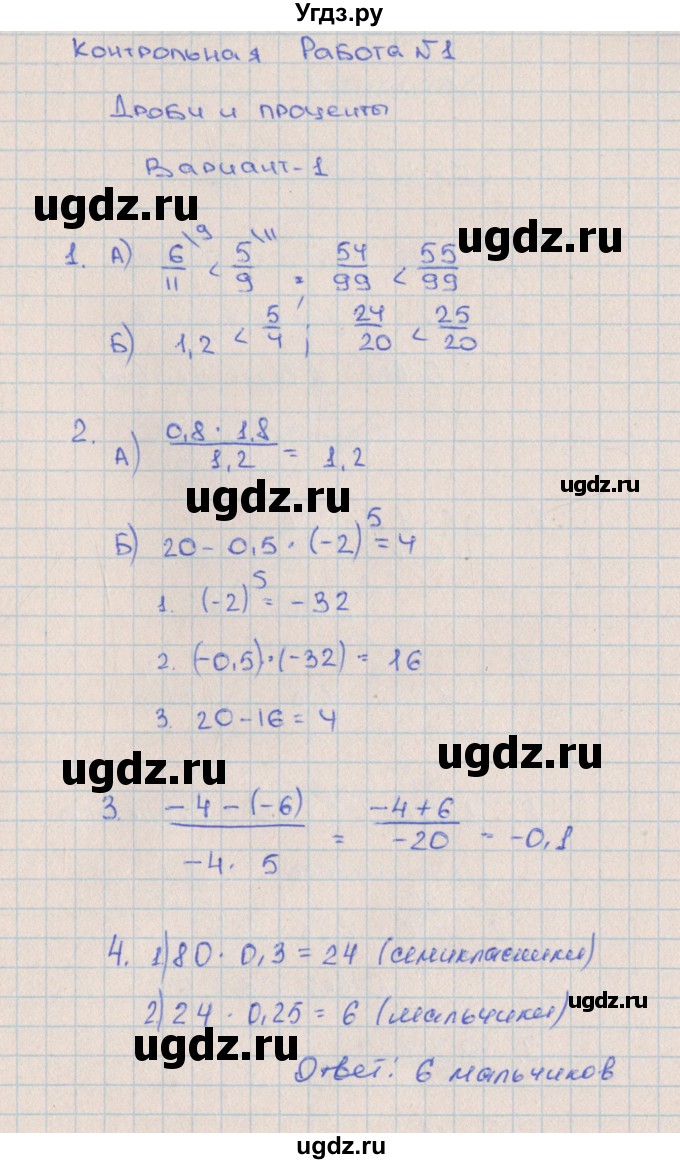 Угдз.ру
Контрольная Работа №1
Дроби и проценты
Вариант-1
ugdz.ru
ugdz.ru
1. А) 6/11 \9 < 5/9 \11 = 54/99 < 55/99
Б) 1,2 < 5/4 ; 24/20 < 25/20
2. А) 0,8 · 1,8 / 1,2 = 1,2
ugdz.ru
ugdz.ru
Б) 20 - 0,5 · (-2)^5 = 4
1. (-2)^5 = -32
2. (-0,5) · (-32) = 16
3. 20 - 16 = 4
ugdz.ru
ugdz.ru
3. -4 - (-6) / -4 · 5 = -4 + 6 / -20 = -0,1
4. 1) 80 · 0,3 = 24 (семикласники)
2) 24 · 0,25 = 6 (мальчики)
ugdz.ru
ugdz.ru
Ответ: 6 мальчиков
ugdz.ru